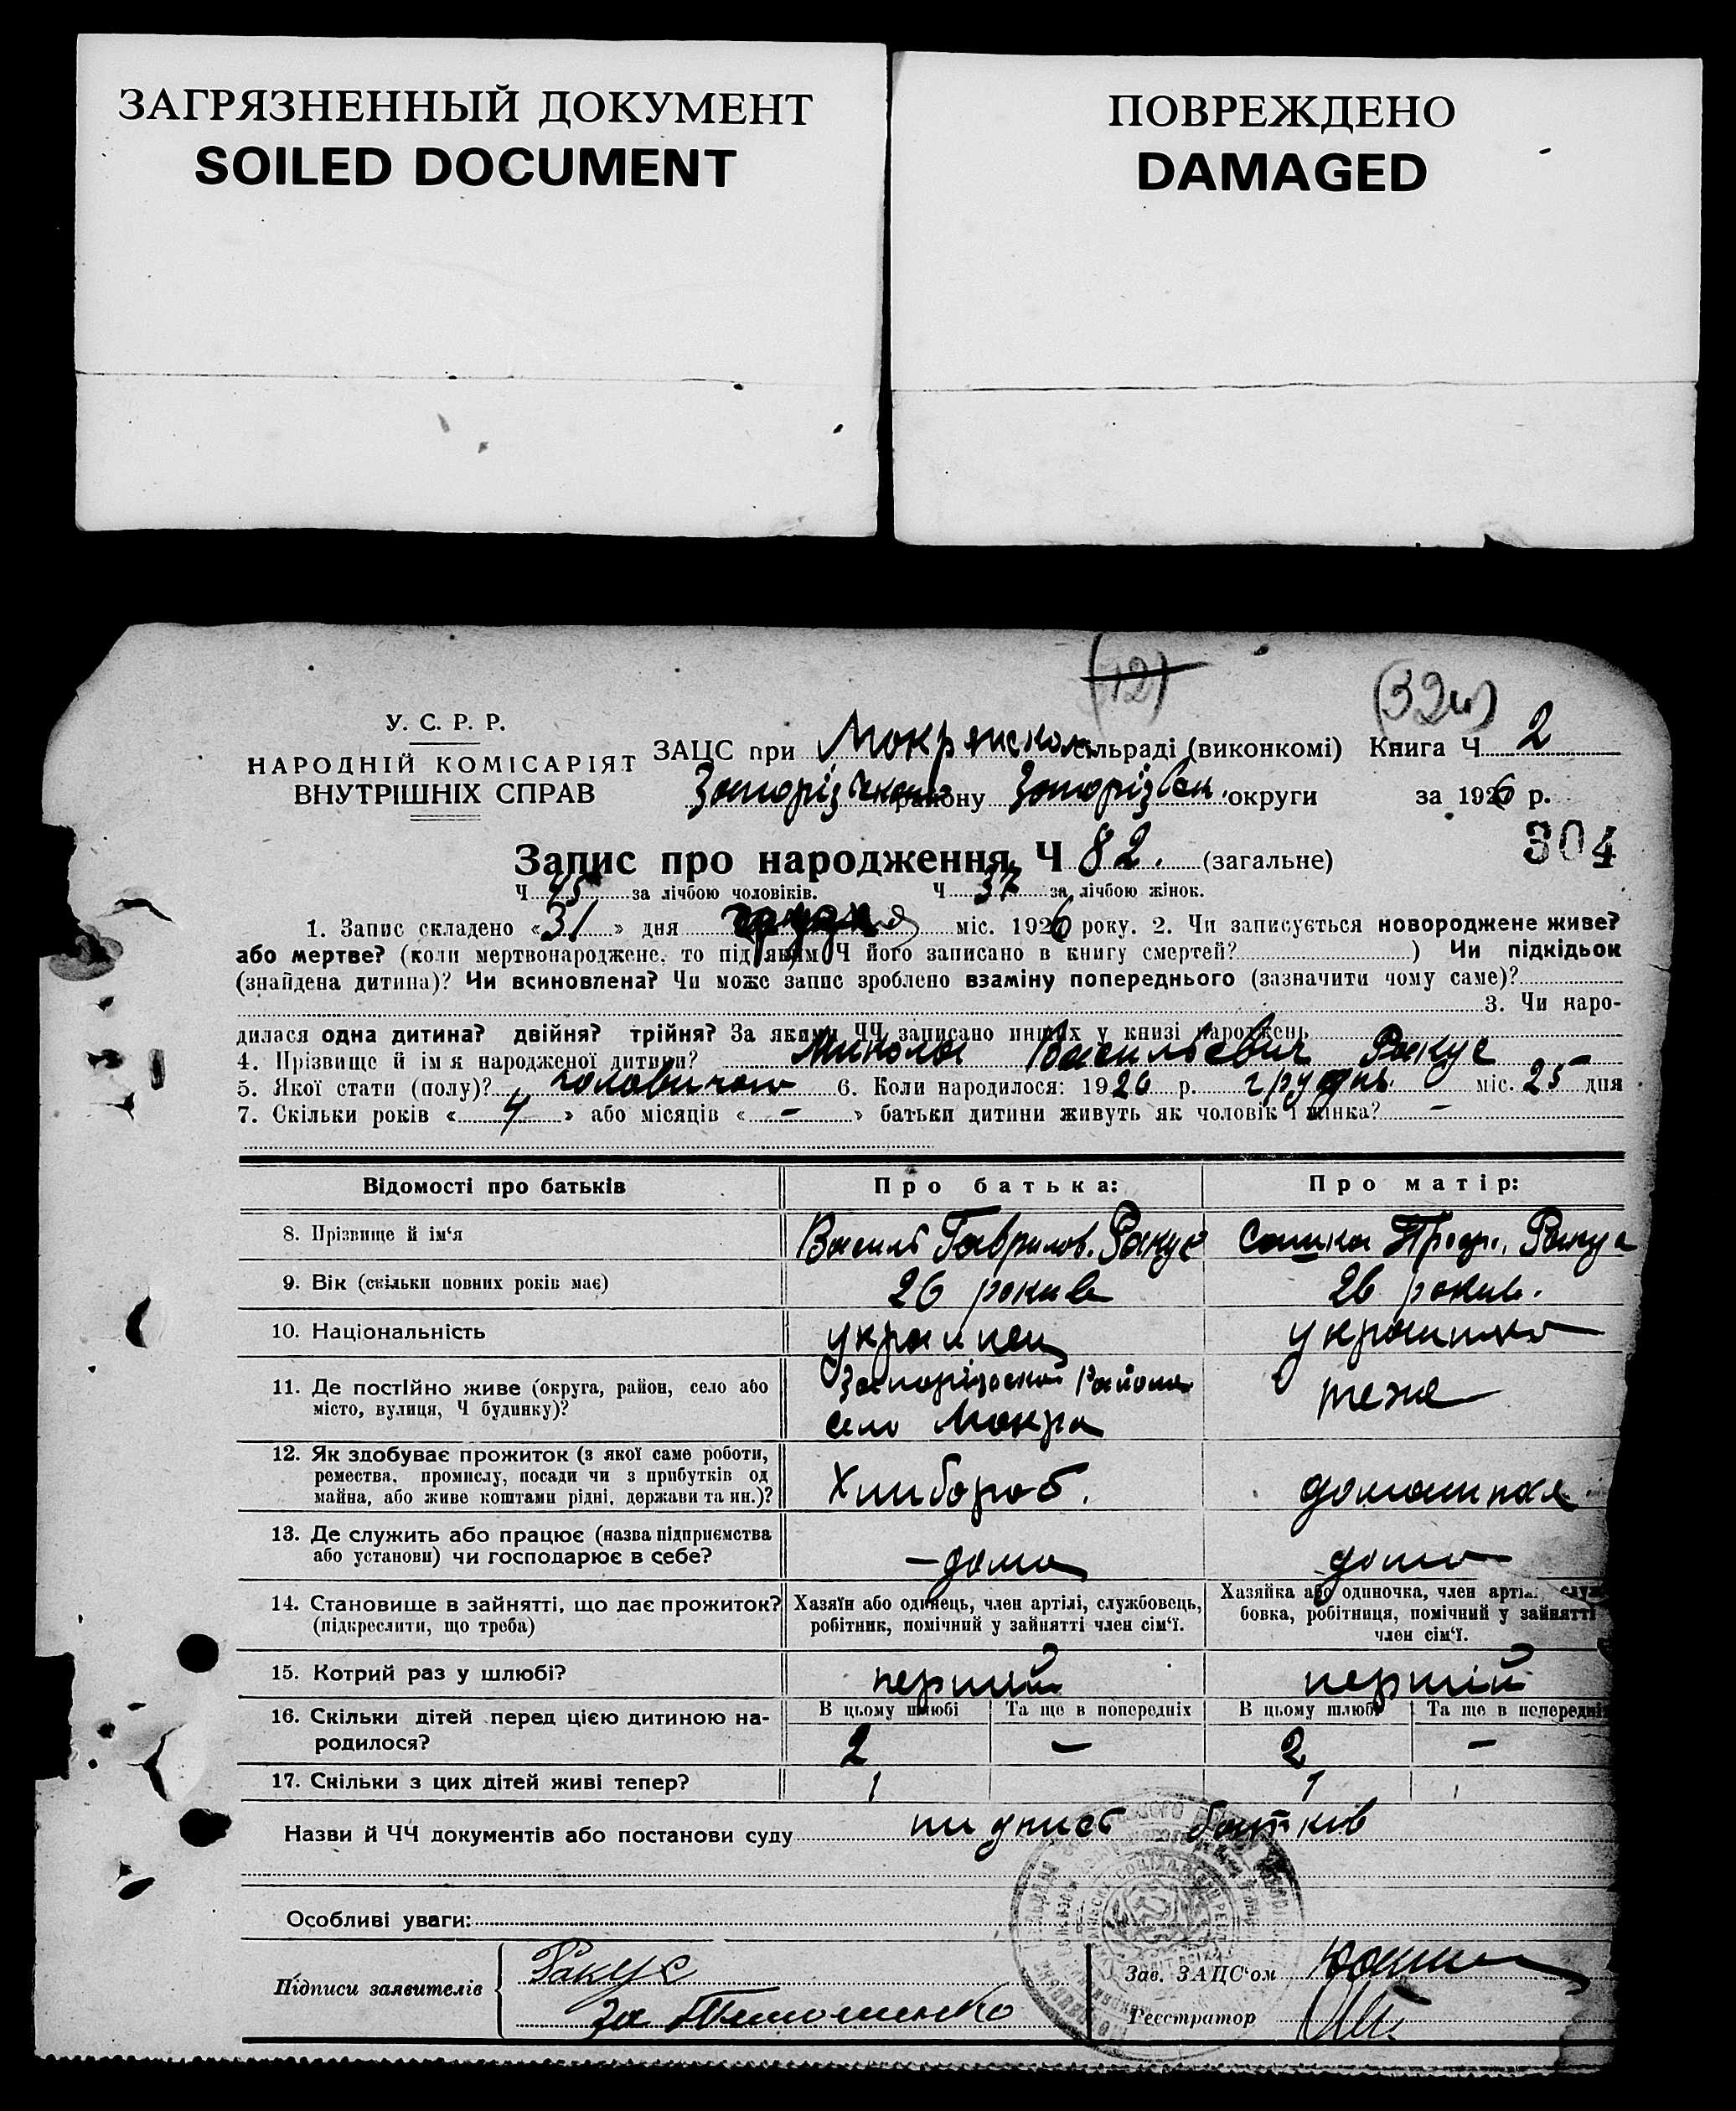 ЗАГРЯЗНЕННЫЙ ДОКУМЕНТ
SOILED DOCUMENT
ПОВРЕЖДЕНО
DAMAGED
(12)
У. С. Р. Р.
НАРОДНІЙ КОМІСАРІЯТ
ВНУТРІШНІХ СПРАВ
ЗАЦС при Мокрянском сільраді (виконкомі) Книга Ч. 2
Запорізького району Запорізьк. округи за 1926 р.
304
Запис про народження Ч 82. (загальне)
Ч 45 за лічбою чоловіків. Ч 37 за лічбою жінок.
1. Запис складено «31» дня грудня міс. 1926 року. 2. Чи записується новороджене живе?
або мертве? (коли мертвонароджене, то під яким Ч його записано в книгу смертей? ) Чи підкідьок
(знайдена дитина)? Чи всиновлена? Чи може запис зроблено взаміну попереднього (зазначити чому саме)?
3. Чи наро-
дилася одна дитина? двійня? трійня? За якими ЧЧ записано инших у книзі народжень
4. Прізвище й ім я народженої дитини? Микола Васильевич Ракус
5. Якої стати (полу)? 6. Коли народилося: 1926 р. грудень міс. 25 дня
7. Скільки років « 4 » або місяців « – » батьки дитини живуть як чоловік і жінка? –
Відомості про батьків Про батька: Про матір:
8. Прізвище й ім'я Василь Гаврилов. Ракус Сашка Ракус
9. Вік (скільки повних років має) 26 рокив 26 рокив.
10. Національність украинец украинка
11. Де постійно живе (округа, район, село або Району
місто, вулиця, Ч будинку)? село Мокра теже
12. Як здобуває прожиток (з якої саме роботи,
ремества, промислу, посади чи з прибутків од
майна, або живе коштами рідні, держави та ин.)? Хлибороб.
13. Де служить або працює (назва підприємства
або установи) чи господарює в себе? – дома дома
14. Становище в зайнятті, що дає прожиток? Хазяїн або одинець, член артілі, службовець, Хазяйка або одиночка, член артілі, служ
(підкреслити, що треба) робітник, помічний у зайнятті член сім'ї. бовка, робітниця, помічний у зайнятті
член сім'ї.
15. Котрий раз у шлюбі? перший перший
16. Скільки дітей перед цією дитиною на- В цьому шлюбі Та ще в попередніх В цьому шлюбі Та ще в попередніх
родилося? 2 – 2 –
17. Скільки з цих дітей живі тепер? 1 1
Назви й ЧЧ документів або постанови суду пидпись батків
Особливі уваги:
Підписи заявителів Ракус Зав. ЗАЦС'ом
За Тимошенко Реєстратор